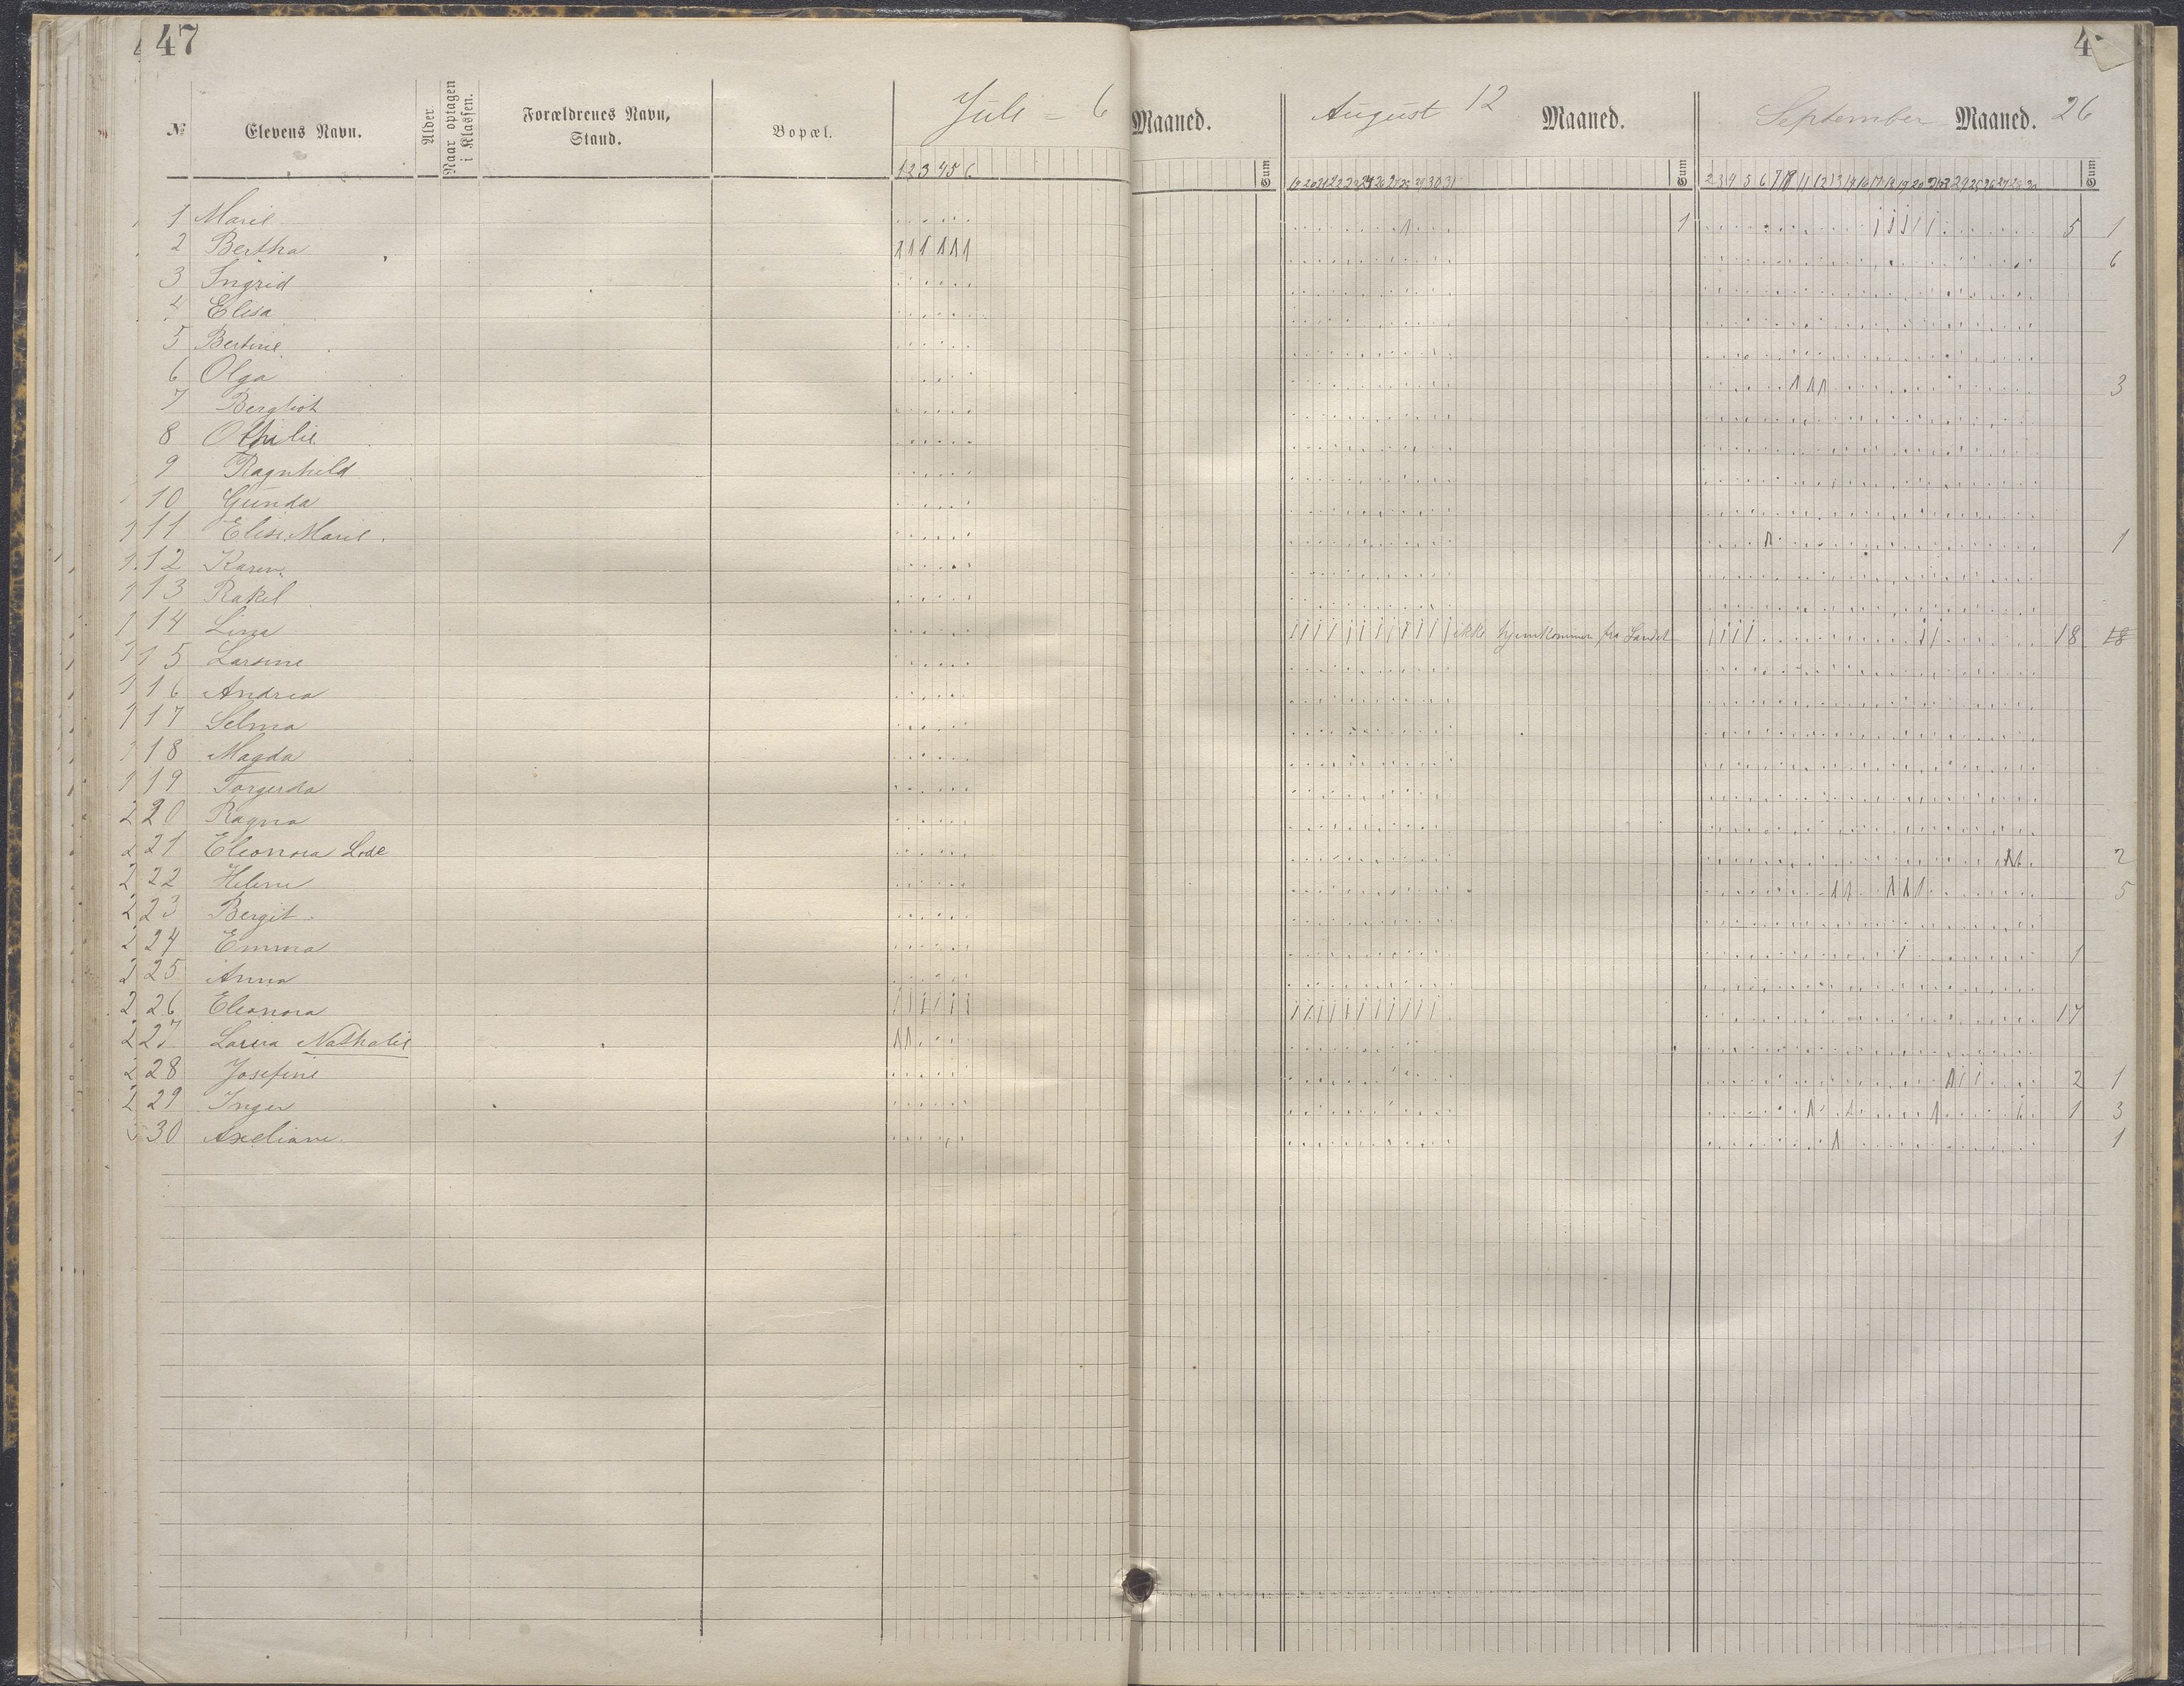 47
4
№ Elevens Navn. Alder Naar optagen i Klassen. Forældrenes Navn, Stand. Bopæl. Juli = 6 Maaned. Sum August 12 Maaned. Sum September Maaned. 26 Sum
1 2 3 4 5 6
1 Marie 1 5 1
2 Bertha 6
3 Ingrid
4 Elisa
5 Bertine
6 Olga 3
7 Bergliot
8 Othilie
9 Ragnhild
10 Gunda
11 Elise Marie 1
12 Karen
13 Rakel
14 Lina ikke hjemkommen fra Landet 18 18
15 Larsine
16 Andrea
17 Selma
18 Magda
19 Torgerda
20 Ragna
21 Eleonora Lode 2
22 Helene 5
23 Bergit
24 Emma 1
25 Anna
26 Eleonora 17
27 Laura Nathalie
28 Josefine 2 1
29 Inger 1 3
30 Axeliane 1